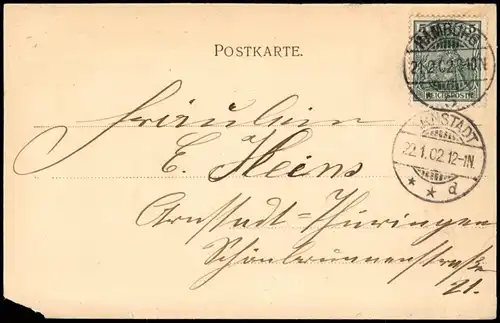 POSTKARTE.
5
REICHSPOST
HAMBURG
21.2.02.2-10N.
ARNSTADT
22.1.02.12-1N.
* * d
Fräulein
E. Heins
Arnstadt-Thüringen
Schönbrunnenstraße
21.